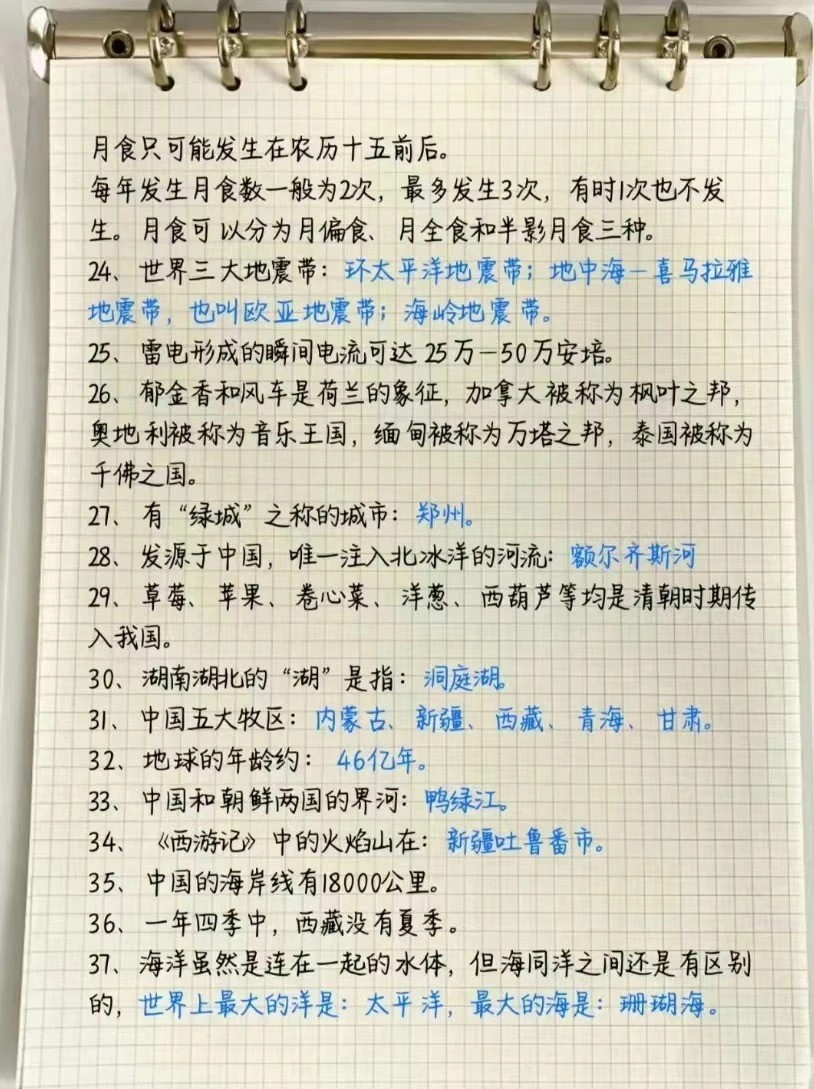 月食只可能发生在农历十五前后。
每年发生月食数一般为2次，最多发生3次，有时1次也不发
生。月食可以分为月偏食、月全食和半影月食三种。
24、世界三大地震带：环太平洋地震带；地中海－喜马拉雅
地震带，也叫欧亚地震带；海岭地震带。
25、雷电形成的瞬间电流可达25万－50万安培。
26、郁金香和风车是荷兰的象征，加拿大被称为枫叶之邦，
奥地利被称为音乐王国，缅甸被称为万塔之邦，泰国被称为
千佛之国。
27、有“绿城”之称的城市：郑州。
28、发源于中国，唯一注入北冰洋的河流：额尔齐斯河
29、草莓、苹果、卷心菜、洋葱、西葫芦等均是清朝时期传
入我国。
30、湖南湖北的“湖”是指：洞庭湖。
31、中国五大牧区：内蒙古、新疆、西藏、青海、甘肃。
32、地球的年龄约：46亿年。
33、中国和朝鲜两国的界河：鸭绿江。
34、《西游记》中的火焰山在：新疆吐鲁番市。
35、中国的海岸线有18000公里。
36、一年四季中，西藏没有夏季。
37、海洋虽然是连在一起的水体，但海同洋之间还是有区别
的，世界上最大的洋是：太平洋，最大的海是：珊瑚海。